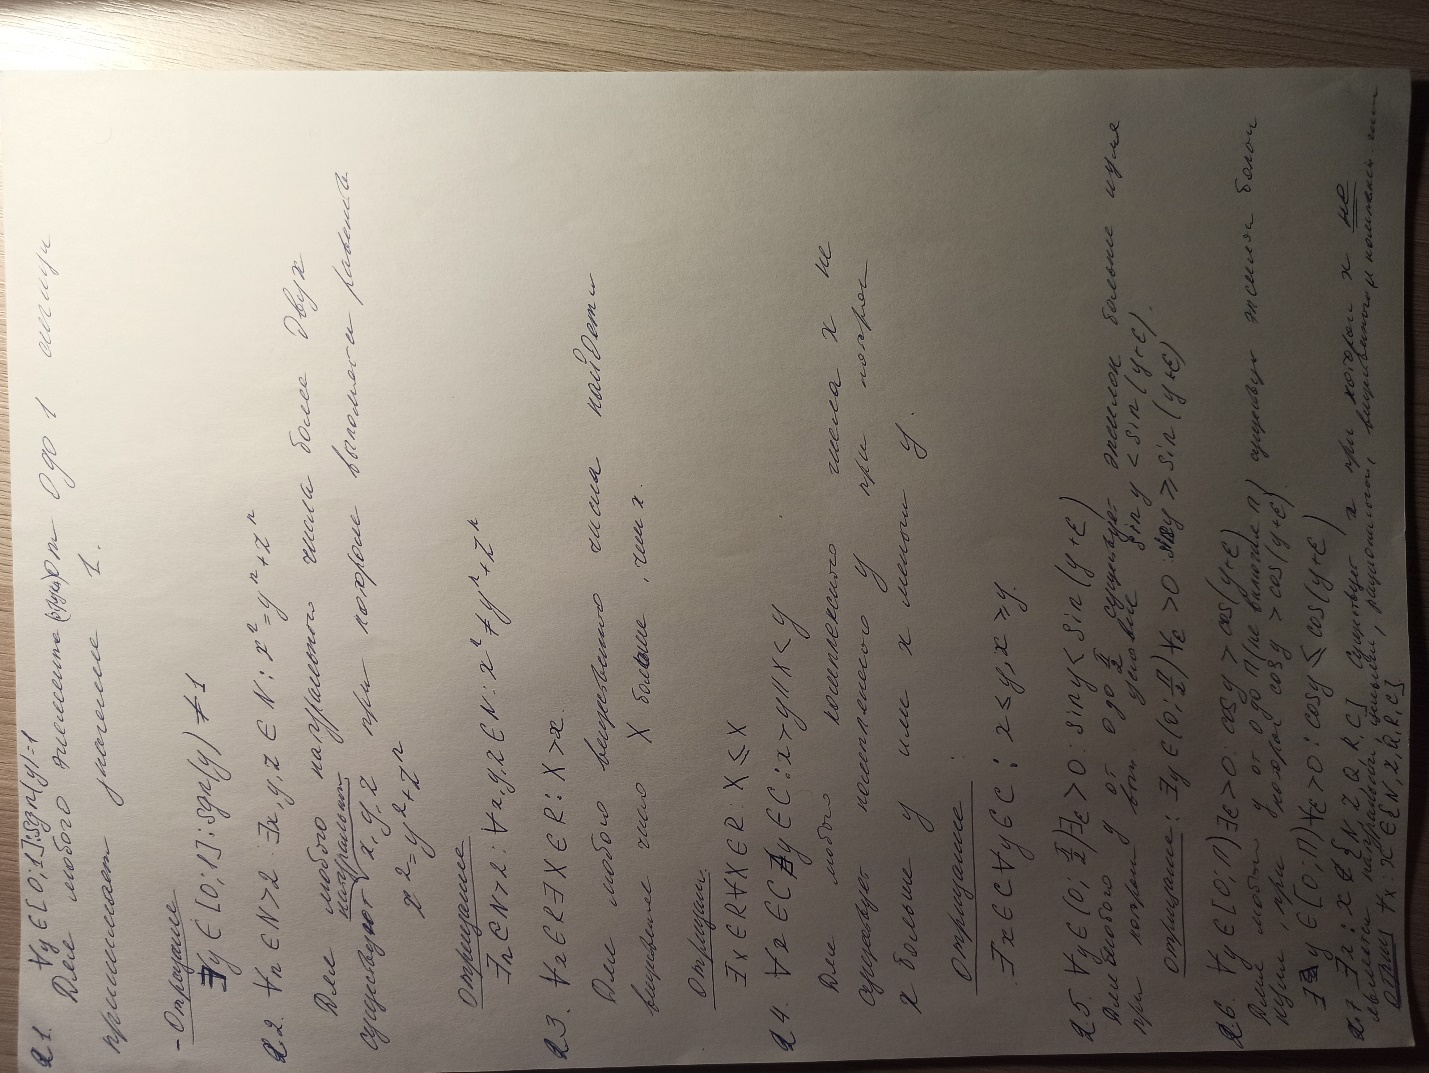 2.1. ∀y ∈ [0;1]: sgn(y)=1
Для любого элемента от 0 до 1
принимает значение 1.
- Отрицание
∃y ∈ [0;1]: sgn(y) ≠ 1
2.2. ∀n ∈ N > 2 ∃x,y,z ∈ N: xⁿ = yⁿ + zⁿ
Для любого натурального числа более двух
существуют натуральные x, y, z при котором выполняется равенство
xⁿ = yⁿ + zⁿ
Отрицание
∃n ∈ N > 2: ∀x,y,z ∈ N: xⁿ ≠ yⁿ + zⁿ
2.3. ∀x ∈ R ∃X ∈ R: X > x.
Для любого числа найдется
число X больше, чем x.
Отрицание
∃x ∈ R ∀X ∈ R: X ≤ x
2.4. ∀x ∈ C ∄y ∈ C: x > y || x < y
Для любого комплексного числа x не
существует комплексного y при котором
x больше y или x меньше y.
Отрицание:
∃x ∈ C ∀y ∈ C: x ≤ y, x ≥ y.
2.5 ∀y ∈ (0; π/2) ∃ε > 0: sin y < sin(y+ε)
Для любого y от 0 до π/2 существует эпсилон больше нуля
при котором условие sin y < sin(y+ε).
Отрицание: ∃y ∈ (0; π/2) ∀ε > 0: sin y ≥ sin(y+ε)
2.6. ∀y ∈ [0; П) ∃ε > 0: cos y > cos(y+ε)
Для любого y от 0 до П (не включая П) существует эпсилон больше
нуля, при котором cos y > cos(y+ε).
∃y ∈ [0; П) ∀ε > 0: cos y ≤ cos(y+ε)
2.7 ∃x: x ∉ {N, Z, Q, R, C} Существует x при котором x не
является натуральным, целым, рациональным, вещественным и комплексным
Отриц ∀x: x ∈ {N, Z, Q, R, C}